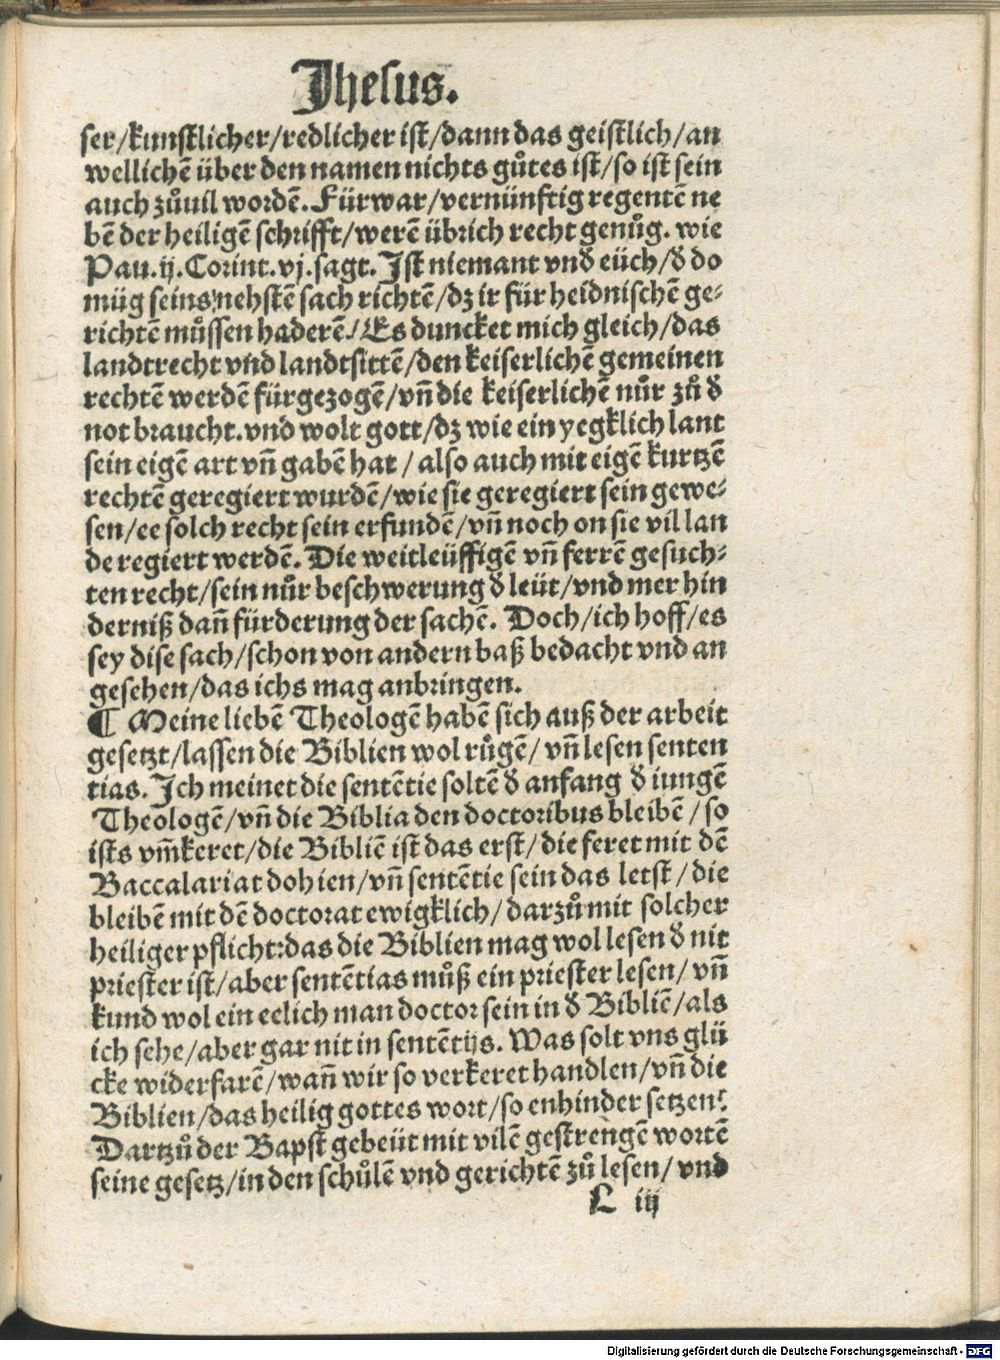 Jhesus.
ser/kunstlicher/redlicher ist/dann das geistlich/an
wellichē über den namen nichts gůtes ist/so ist sein
auch zůuil wordē. Fürwar/vernünftig regentē ne
bē der heiligē schrifft/werē übrich recht genůg. wie
Pau.ij.Corint.vj.sagt. Ist niemant vnd eüch/d̕ do
müg seins nehstē sach richtē/dz ir für heidnischē ge⸗
richtē můssen haderē/Es duncket mich gleich/das
landtrecht vnd landtsittē/den keiserlichē gemeinen
rechtē werdē fürgezogē/vñ die keiserlichē nůr zů d̕
not braucht.vnd wolt gott/dz wie ein yegklich lant
sein eigē art vñ gabē hat/also auch mit eigē kurtzē
rechtē geregiert wurdē/wie sie geregiert sein gewe⸗
sen/ee solch recht sein erfundē/vñ noch on sie vil lan
de regiert werdē. Die weitleüffigē vñ ferrē gesuch⸗
ten recht/sein nůr beschwerung d̕ leüt/vnd mer hin
derniß dañ fürderung der sachē. Doch/ich hoff/es
sey dise sach/schon von andern baß bedacht vnd an
gesehen/das ichs mag anbringen.
¶ Meine liebē Theologē habē sich auß der arbeit
gesetzt/lassen die Biblien wol růgē/vñ lesen senten
tias. Ich meinet die sentētie soltē d̕ anfang d̕ iungē
Theologē/vñ die Biblia den doctoribus bleibē/so
ists vm̄keret/die Bibliē ist das erst/die feret mit dē
Baccalariat dohien/vñ sentētie sein das letst/die
bleibē mit dē doctorat ewigklich/darzů mit solcher
heiliger pflicht:das die Biblien mag wol lesen d̕ nit
priester ist/aber sentētias můß ein priester lesen/vñ
kund wol ein eelich man doctor sein in d̕ Bibliē/als
ich sehe/aber gar nit in sentētijs. Was solt vns glü
cke widerfarē/wañ wir so verkeret handlen/vñ die
Biblien/das heilig gottes wort/so enhinder setzen?
Dartzů der Bapst gebeüt mit vilē gestrengē wortē
seine gesetz/in den schůlē vnd gerichtē zů lesen/vnd
L iij
Digitalisierung gefördert durch die Deutsche Forschungsgemeinschaft - DFG